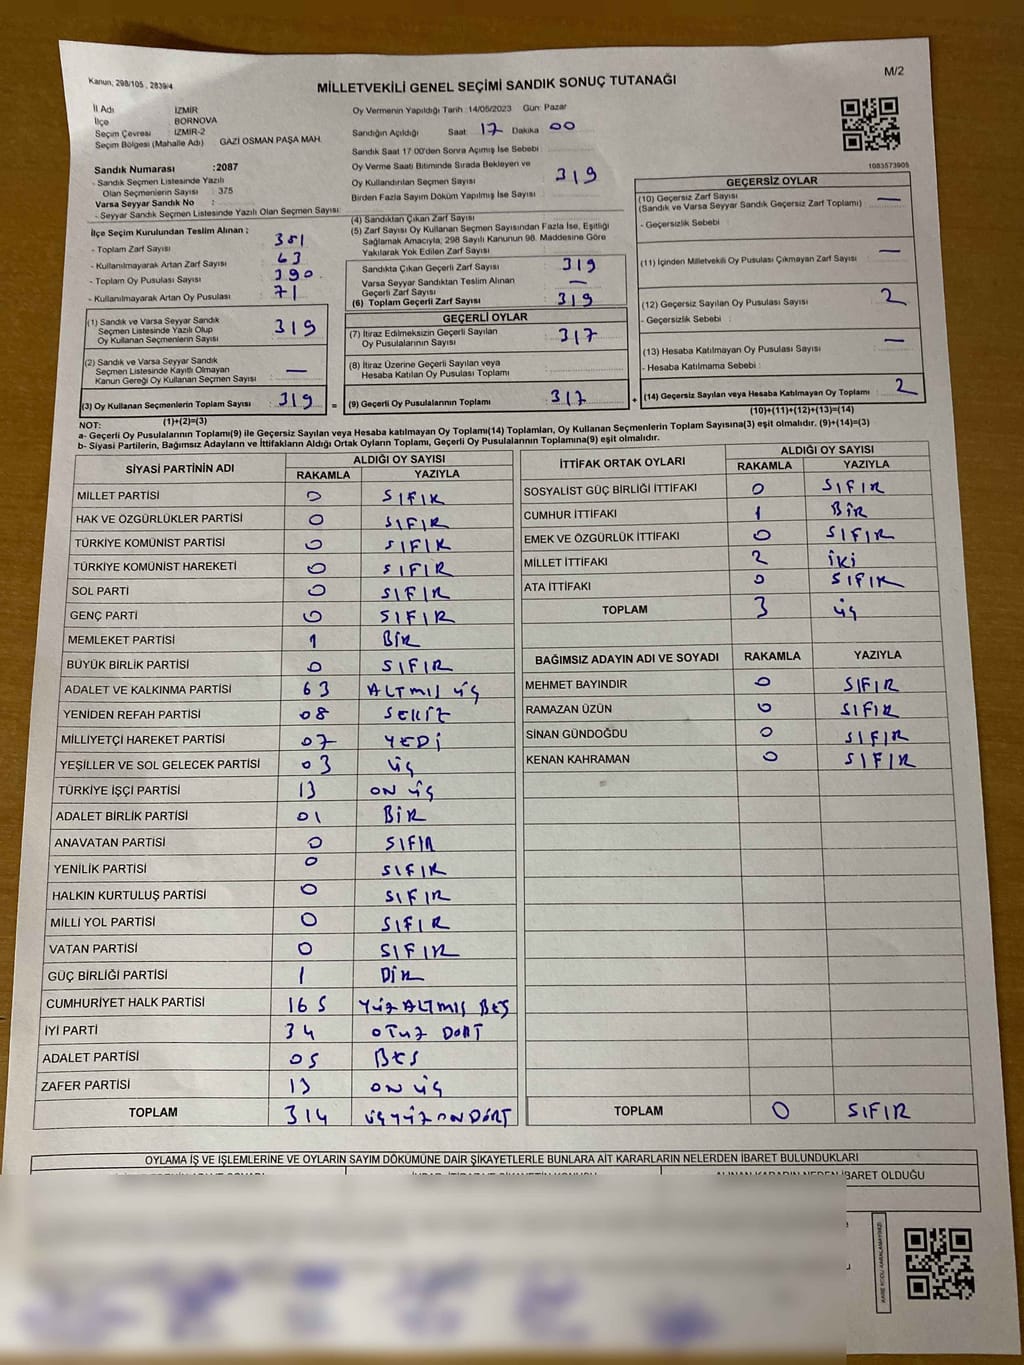 Kanun, 298/105 , 2839/4
M/2
MİLLETVEKİLİ GENEL SEÇİMİ SANDIK SONUÇ TUTANAĞI
İl Adı İZMİR
İlçe BORNOVA
Seçim Çevresi İZMİR-2
Seçim Bölgesi (Mahalle Adı) GAZİ OSMAN PAŞA MAH.
Sandık Numarası :2087
- Sandık Seçmen Listesinde Yazılı
Olan Seçmenlerin Sayısı : 375
Varsa Seyyar Sandık No :
- Seyyar Sandık Seçmen Listesinde Yazılı Olan Seçmen Sayısı:
İlçe Seçim Kurulundan Teslim Alınan ;
- Toplam Zarf Sayısı 381
- Kullanılmayarak Artan Zarf Sayısı 63
- Toplam Oy Pusulası Sayısı 390
- Kullanılmayarak Artan Oy Pusulası 71
(1) Sandık ve Varsa Seyyar Sandık
Seçmen Listesinde Yazılı Olup
Oy Kullanan Seçmenlerin Sayısı 319
(2) Sandık ve Varsa Seyyar Sandık
Seçmen Listesinde Kayıtlı Olmayan
Kanun Gereği Oy Kullanan Seçmen Sayısı —
(3) Oy Kullanan Seçmenlerin Toplam Sayısı 319 =
(1)+(2)=(3)
Oy Vermenin Yapıldığı Tarih :14/05/2023 Gün: Pazar
Sandığın Açıldığı Saat 17 Dakika 00
Sandık Saat 17:00'den Sonra Açımış İse Sebebi :
Oy Verme Saati Bitiminde Sırada Bekleyen ve
Oy Kullandırılan Seçmen Sayısı 319
Birden Fazla Sayım Döküm Yapılmış İse Sayısı :
(4) Sandıktan Çıkan Zarf Sayısı
(5) Zarf Sayısı Oy Kullanan Seçmen Sayısından Fazla İse, Eşitliği
Sağlamak Amacıyla, 298 Sayılı Kanunun 98. Maddesine Göre
Yakılarak Yok Edilen Zarf Sayısı
Sandıkta Çıkan Geçerli Zarf Sayısı 319
Varsa Seyyar Sandıktan Teslim Alınan
Geçerli Zarf Sayısı —
(6) Toplam Geçerli Zarf Sayısı 319
GEÇERLİ OYLAR
(7) İtiraz Edilmeksizin Geçerli Sayılan
Oy Pusulalarının Sayısı 317
(8) İtiraz Üzerine Geçerli Sayılan veya
Hesaba Katılan Oy Pusulası Toplamı
(9) Geçerli Oy Pusulalarının Toplamı 317 +
1083573905
GEÇERSİZ OYLAR
(10) Geçersiz Zarf Sayısı
(Sandık ve Varsa Seyyar Sandık Geçersiz Zarf Toplamı) —
- Geçersizlik Sebebi
(11) İçinden Milletvekili Oy Pusulası Çıkmayan Zarf Sayısı —
(12) Geçersiz Sayılan Oy Pusulası Sayısı 2
- Geçersizlik Sebebi :
(13) Hesaba Katılmayan Oy Pusulası Sayısı —
- Hesaba Katılmama Sebebi :
(14) Geçersiz Sayılan veya Hesaba Katılmayan Oy Toplamı 2
(10)+(11)+(12)+(13)=(14)
NOT:
a- Geçerli Oy Pusulalarının Toplamı(9) ile Geçersiz Sayılan veya Hesaba katılmayan Oy Toplamı(14) Toplamları, Oy Kullanan Seçmenlerin Toplam Sayısına(3) eşit olmalıdır. (9)+(14)=(3)
b- Siyasi Partilerin, Bağımsız Adayların ve İttifakların Aldığı Ortak Oyların Toplamı, Geçerli Oy Pusulalarının Toplamına(9) eşit olmalıdır.
SİYASİ PARTİNİN ADI ALDIĞI OY SAYISI
RAKAMLA YAZIYLA
MİLLET PARTİSİ 0 SIFIR
HAK VE ÖZGÜRLÜKLER PARTİSİ 0 SIFIR
TÜRKİYE KOMÜNİST PARTİSİ 0 SIFIR
TÜRKİYE KOMÜNİST HAREKETİ 0 SIFIR
SOL PARTİ 0 SIFIR
GENÇ PARTİ 0 SIFIR
MEMLEKET PARTİSİ 1 BİR
BÜYÜK BİRLİK PARTİSİ 0 SIFIR
ADALET VE KALKINMA PARTİSİ 63 ALTMIŞ ÜÇ
YENİDEN REFAH PARTİSİ 08 SEKİZ
MİLLİYETÇİ HAREKET PARTİSİ 07 YEDİ
YEŞİLLER VE SOL GELECEK PARTİSİ 03 ÜÇ
TÜRKİYE İŞÇİ PARTİSİ 13 ON ÜÇ
ADALET BİRLİK PARTİSİ 01 BİR
ANAVATAN PARTİSİ 0 SIFIR
YENİLİK PARTİSİ 0 SIFIR
HALKIN KURTULUŞ PARTİSİ 0 SIFIR
MİLLİ YOL PARTİSİ 0 SIFIR
VATAN PARTİSİ 0 SIFIR
GÜÇ BİRLİĞİ PARTİSİ 1 BİR
CUMHURİYET HALK PARTİSİ 165 YÜZ ALTMIŞ BEŞ
İYİ PARTİ 34 OTUZ DÖRT
ADALET PARTİSİ 05 BEŞ
ZAFER PARTİSİ 13 ON ÜÇ
TOPLAM 314 ÜÇ YÜZ ON DÖRT
İTTİFAK ORTAK OYLARI ALDIĞI OY SAYISI
RAKAMLA YAZIYLA
SOSYALİST GÜÇ BİRLİĞİ İTTİFAKI 0 SIFIR
CUMHUR İTTİFAKI 1 BİR
EMEK VE ÖZGÜRLÜK İTTİFAKI 0 SIFIR
MİLLET İTTİFAKI 2 İKİ
ATA İTTİFAKI 0 SIFIR
TOPLAM 3 ÜÇ
BAĞIMSIZ ADAYIN ADI VE SOYADI RAKAMLA YAZIYLA
MEHMET BAYINDIR 0 SIFIR
RAMAZAN ÜZÜN 0 SIFIR
SİNAN GÜNDOĞDU 0 SIFIR
KENAN KAHRAMAN 0 SIFIR
TOPLAM 0 SIFIR
OYLAMA İŞ VE İŞLEMLERİNE VE OYLARIN SAYIM DÖKÜMÜNE DAİR ŞİKAYETLERLE BUNLARA AİT KARARLARIN NELERDEN İBARET BULUNDUKLARI
İBARET OLDUĞU